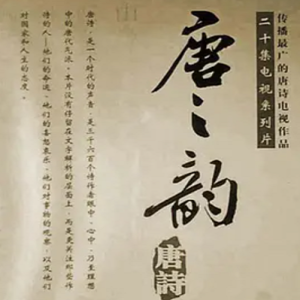 传播最广的唐诗电视作品
二十集电视系列片
唐之韵
唐詩
唐诗，是一个时代的声音，是三千六百个诗作者眼中、心中、乃至理想
中的唐代气派。本片没有停留在文字解释的层面上，而是更关注那些作
诗的人——他们的命运、他们的喜怒哀乐、他们对事物的观察，以及他们
对国家和人生的态度。